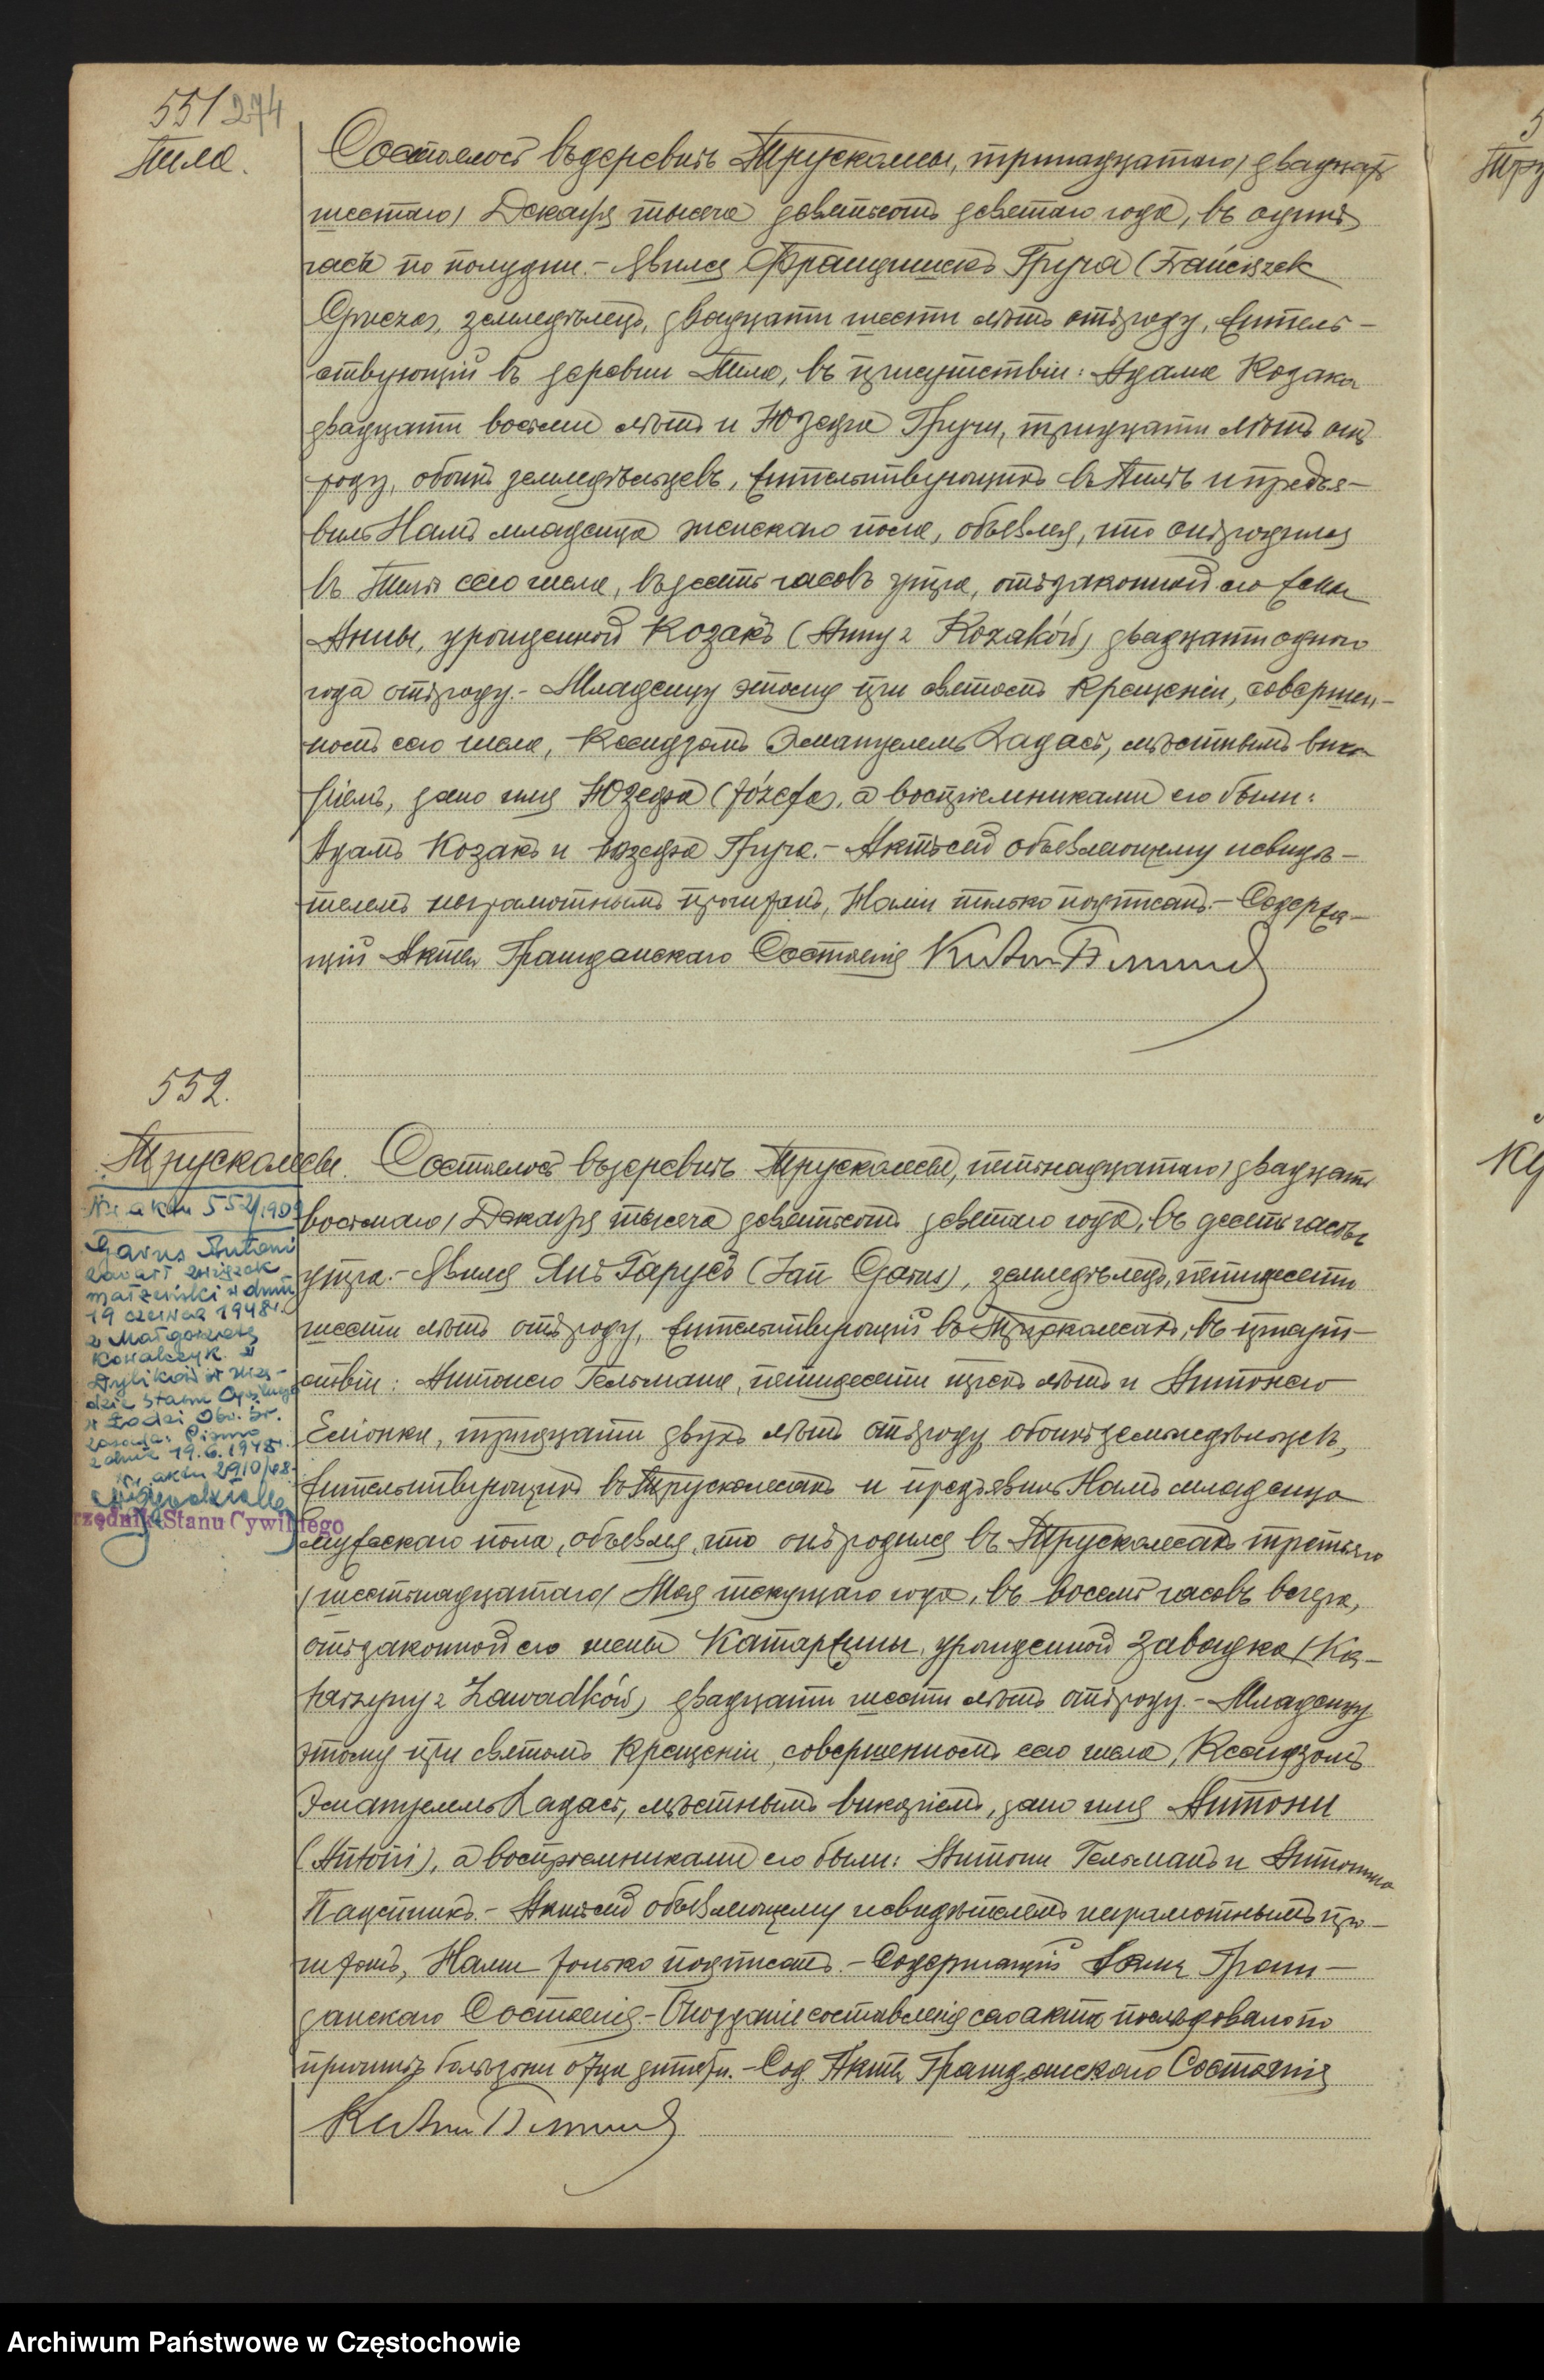 551 274
Пила.
Состоялось въ деревнѣ Трускалясы, тринадцатаго / двадцать
шестаго / Декабря тысяча девятьсотъ девятаго года, въ одинъ
часъ по полудни. – Явился Францишекъ Груча (Franciszek
Grucza), земледѣлецъ, двадцати шести лѣтъ отъ роду, житель-
ствующій въ деревни Пила, въ присутствіи: Адама Козака
двадцати восьми лѣтъ и Юзефа Гручи, тридцати лѣтъ отъ
роду, обоихъ земледѣльцевъ, жительствующихъ въ Пилѣ и предъя-
вилъ Намъ младенца женскаго пола, объявляя, что онъ родился
въ Пилѣ сего числа, въ десять часовъ утра, отъ законной его жены
Анны, урожденной Козакъ (Anny z Kozaków) двадцати одного
года отъ роду. – Младенцу этому при святомъ Крещеніи, совершен-
номъ сего числа, Ксендзомъ Эмануелемъ мѣстнымъ вика-
ріемъ, дано имя Юзефа (Józefa), а воспріемниками его были:
Адамъ Козакъ и Юзефа Груча. – Актъ сей объявляющему и свидѣ-
телямъ неграмотнымъ прочитанъ, Нами только подписанъ. – Содержа-
щій Акты Гражданскаго Состоянія
552.
Трускалясы. Состоялось въ деревнѣ Трускалясы, пятнадцатаго / двадцать
восьмаго / Декабря тысяча девятьсотъ девятаго года, въ десять часовъ
утра. – Явился Янъ Гарусъ (Jan Garus), земледѣлецъ, пятидесяти
шести лѣтъ отъ роду, жительствующій въ Трускалясахъ, въ присут-
ствіи: Антонего Гельмана, пятидесяти трехъ лѣтъ и Антонего
Еліонки, тридцати двухъ лѣтъ отъ роду обоихъ земледѣльцевъ,
жительствующихъ въ Трускалясахъ и предъявилъ Намъ младенца
мужескаго пола, объявляя, что онъ родился въ Трускалясахъ третьяго
/ шестнадцатаго / Мая текущаго года, въ восемь часовъ вечера,
отъ законной его жены Катаржины, урожденной Завадка (Ka-
tarzyny z Zawadków) двадцати шести лѣтъ отъ роду. – Младенцу
этому при святомъ Крещеніи, совершенномъ сего числа, Ксендзомъ
Эмануелемъ мѣстнымъ викаріемъ, дано имя Антони
(Antoni), а воспріемниками его были: Антони Гельманъ и Антонина
– Актъ сей объявляющему и свидѣтелямъ неграмотнымъ про-
читанъ, Нами только подписанъ. – Содержащій Акты Граж-
данскаго Состоянія. – Опозданіе составленія сего акта послѣдовало по
причинѣ болѣзни отца дитяти. – Сод. Акты Гражданскаго Состоянія
Nr aktu 552/1909
Garus Antoni
zawarł związek
małżeński w dniu
19 czerwca 1948 r.
z Małgorzatą
Kowalczyk w
Urzę-
dzie Stanu Cywilnego
w Łodzi Obw. Śr.
Zasada: Pismo
z dnia 19.6.1948 r.
Nr aktu 2910/48.
Urzędnik Stanu Cywilnego
Archiwum Państwowe w Częstochowie